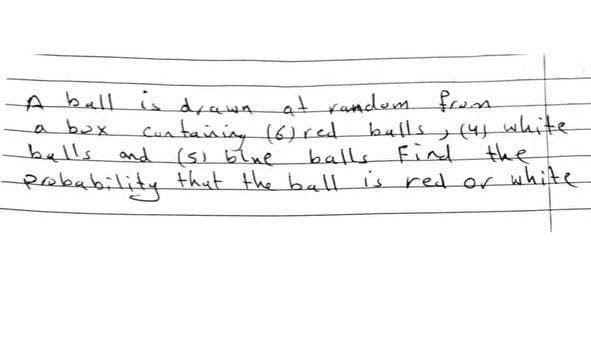 A ball is drawn at random from
a box containing (6) red balls, (4) white
balls and (5) blue balls Find the
probability that the ball is red or white